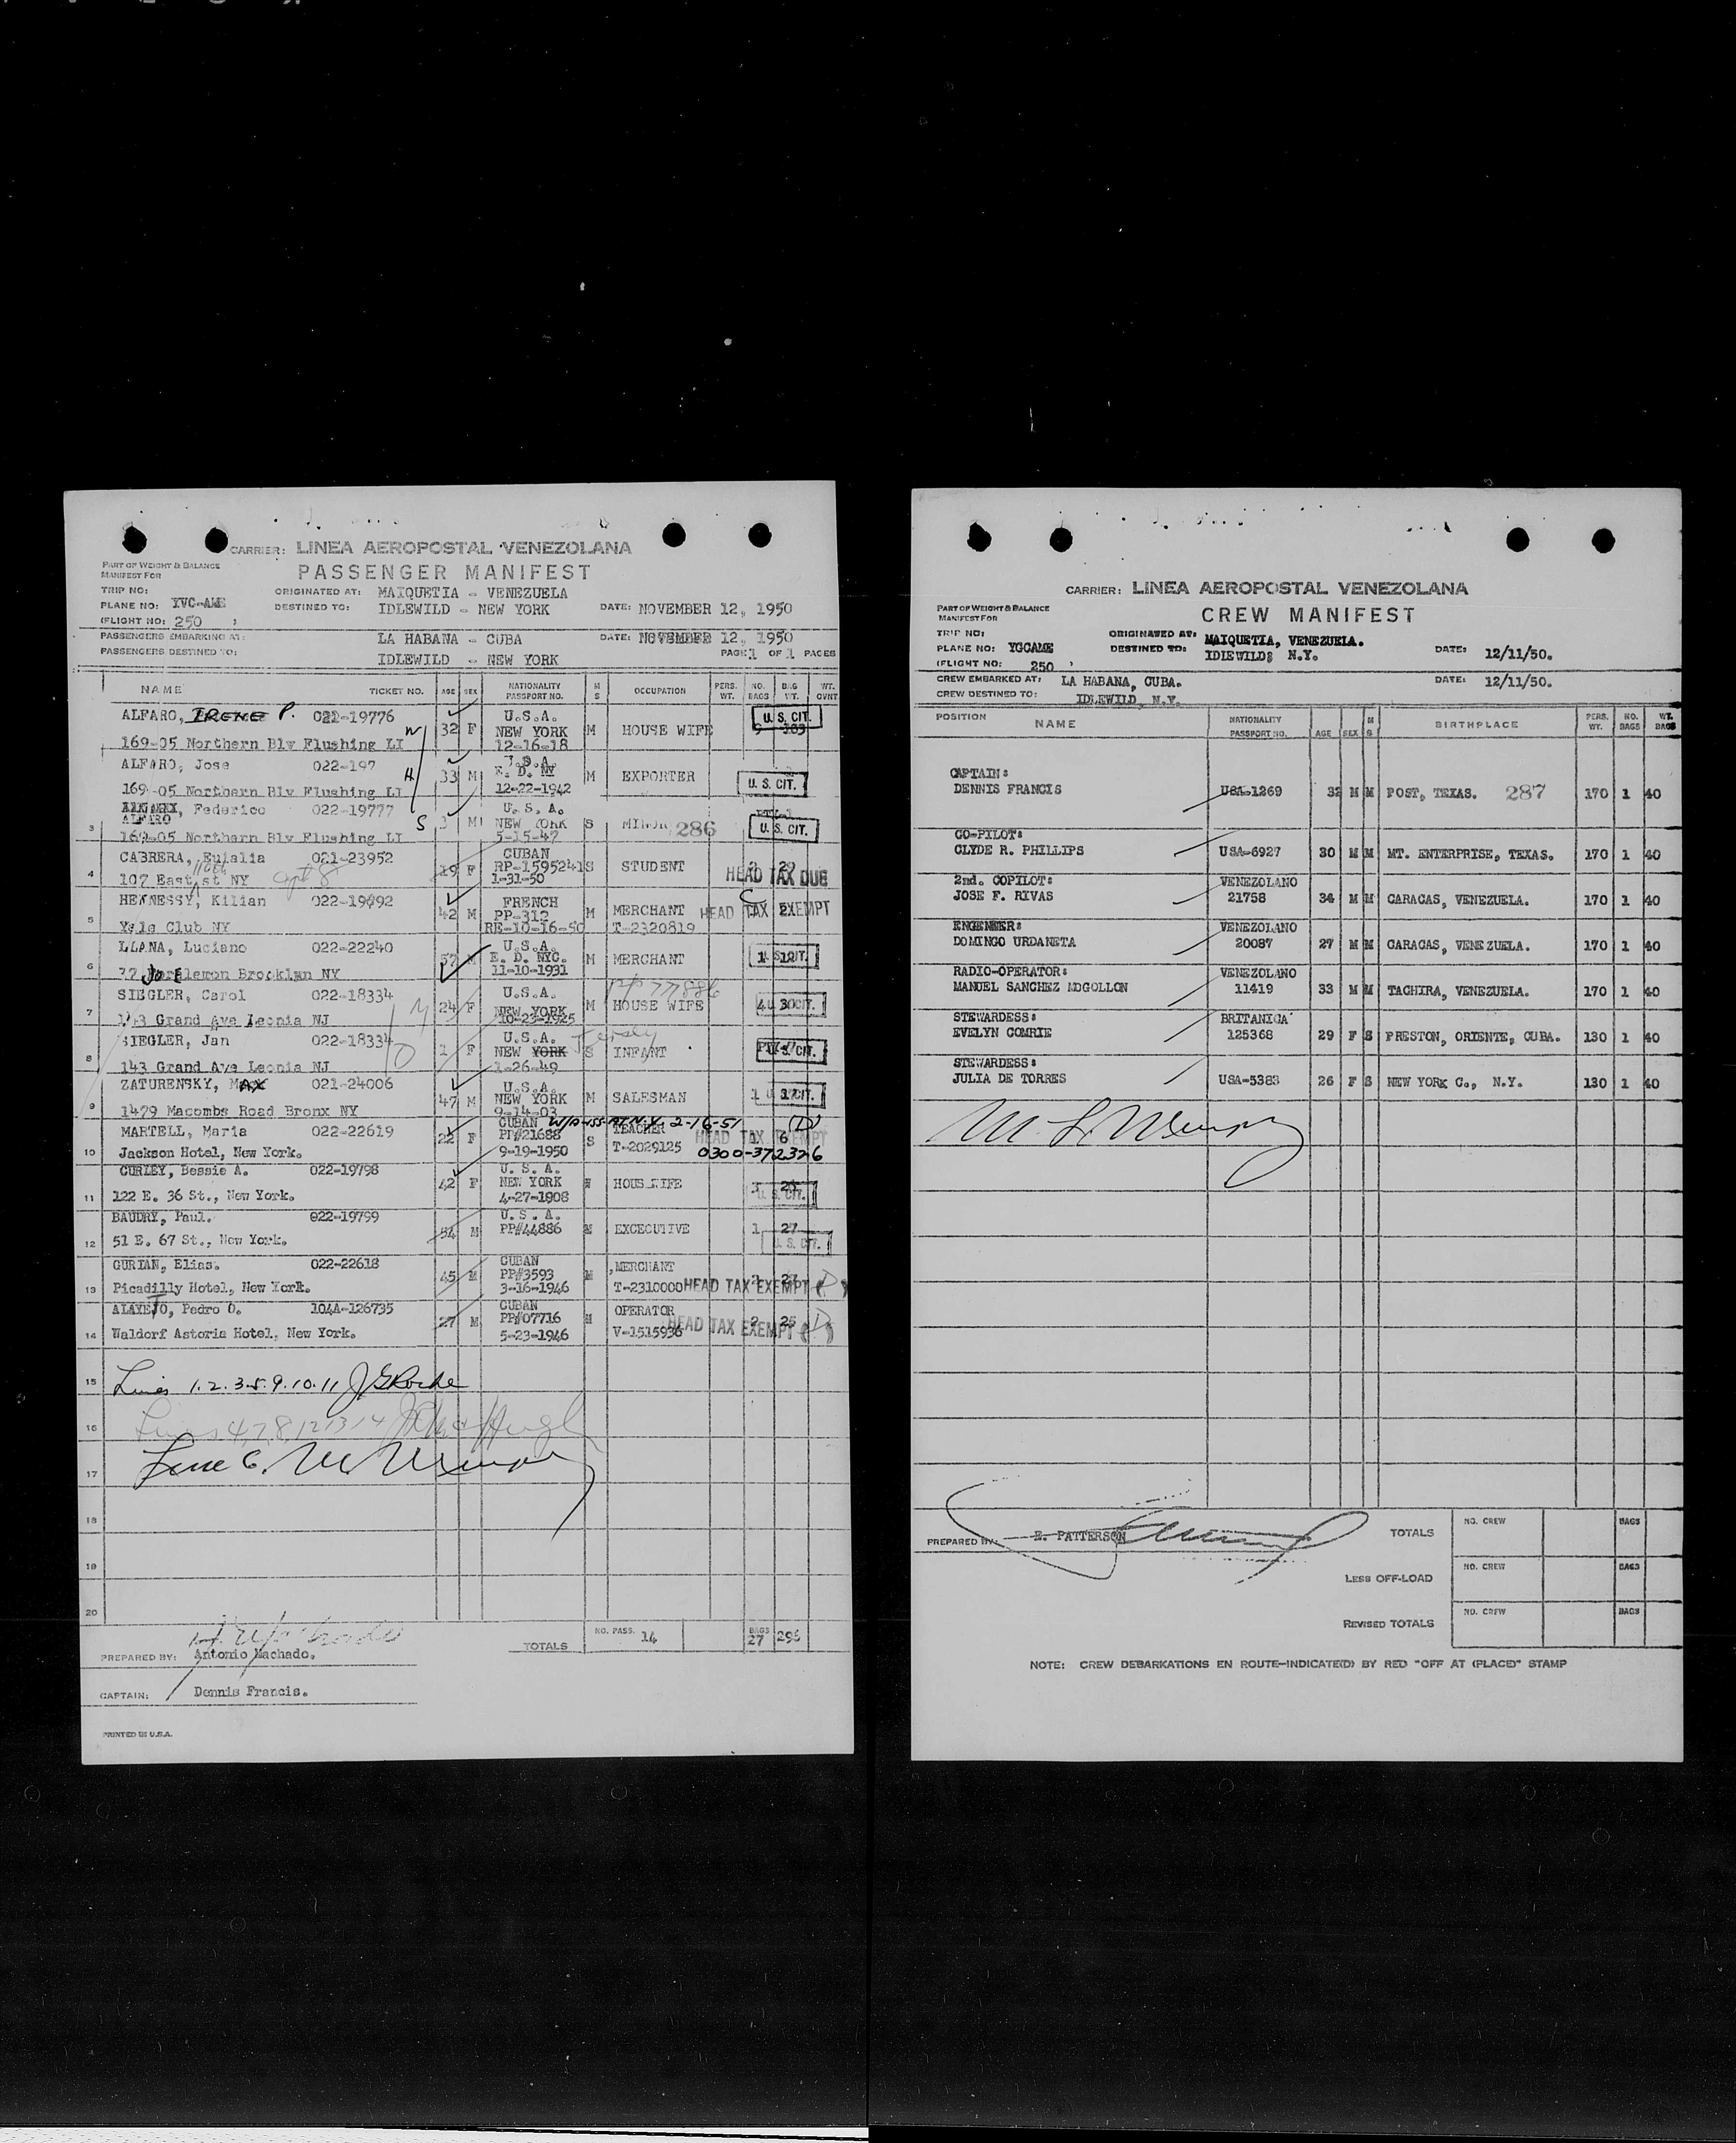 CARRIER: LINEA AEROPOSTAL VENEZOLANA
PASSENGER MANIFEST
PART OF WEIGHT & BALANCE
MANIFEST FOR
TRIP NO:
ORIGINATED AT: MAIQUETIA - VENEZUELA
PLANE NO: YVC-AME
DESTINED TO: IDLEWILD - NEW YORK DATE: NOVEMBER 12, 1950
(FLIGHT NO: 250 )
PASSENGERS EMBARKING AT: LA HABANA - CUBA DATE: NOVEMBER 12, 1950
PASSENGERS DESTINED TO: IDLEWILD - NEW YORK PAGE 1 OF 1 PAGES
NAME TICKET NO. AGE SEX NATIONALITY PASSPORT NO. M S OCCUPATION PERS. WT. NO. BAGS BAG WT. WT. OVNT
ALFARO, IRENE P. 021-19776 32 F U.S.A. NEW YORK 12-16-18 M HOUSE WIFE U. S. CIT.
W
169-05 Northern Blv Flushing LI
ALFARO, Jose 022-197 33 M U.S.A. E. D. NY 12-22-1942 M EXPORTER U. S. CIT.
H
169-05 Northern Blv Flushing LI
ALFARO, Federico 022-19777 3 M U. S. A. NEW YORK 5-15-47 S MINOR 286 U. S. CIT.
S
3 169-05 Northern Blv Flushing LI
CABRERA, Eulalia 021-23952 19 F CUBAN RP-159524 1-31-50 S STUDENT 2 29 HEAD TAX DUE
4 107 East 116th st NY apt 8
HENNESSY, Kilian 022-19992 42 M FRENCH PP-312 RE-10-16-50 M MERCHANT T-2320819 HEAD TAX EXEMPT
5 Yale Club NY
LLANA, Luciano 022-22240 57 M U.S.A. E. D. NYC. 11-10-1931 M MERCHANT U. S. CIT.
6 77 Joralemon Brooklyn NY
SIEGLER, Carol 022-18334 24 F U.S.A. NEW YORK 10-23-1925 M HOUSE WIFE PP 77886 4 30 U. S. CIT.
7 143 Grand Ave Leonia NJ
SIEGLER, Jan 022-18334 1 F U.S.A. NEW YORK Jersey 1-26-49 S INFANT U. S. CIT.
8 143 Grand Ave Leonia NJ
ZATURENSKY, MAX 021-24006 47 M U.S.A. NEW YORK 9-14-03 M SALESMAN 1 U. S. CIT.
9 1479 Macombs Road Bronx NY
MARTELL, Maria 022-22619 22 F CUBAN PP#21688 9-19-1950 S TEACHER T-2029125 HEAD TAX EXEMPT
2-16-51 (D)
0300-372326
10 Jackson Hotel, New York.
CURLEY, Bessie A. 022-19798 42 F U. S. A. NEW YORK 4-27-1908 HOUSEWIFE U. S. CIT.
11 122 E. 36 St., New York.
BAUDRY, Paul. 022-19799 54 M U. S. A. PP#44886 M EXCECUTIVE 1 27 U. S. CIT.
12 51 E. 67 St., New York.
GURIAN, Elias. 022-22618 45 M CUBAN PP#3593 3-16-1946 M MERCHANT T-2310000 HEAD TAX EXEMPT (D)
13 Picadilly Hotel, New York.
ALAYETO, Pedro O. 104A-126735 27 M CUBAN PP#07716 5-23-1946 M OPERATOR V-1515936 2 25 HEAD TAX EXEMPT (D)
14 Waldorf Astoria Hotel, New York.
15 Lines 1.2.3.5.9.10.11
16 Lines 4,7,8,12,13,14
17 Line 6.
18
19
20
TOTALS NO. PASS. 14 BAGS 27 296
PREPARED BY: Antonio Machado.
CAPTAIN: Dennis Francis.
PRINTED IN U.S.A.
CARRIER: LINEA AEROPOSTAL VENEZOLANA
CREW MANIFEST
PART OF WEIGHT & BALANCE
MANIFEST FOR
TRIP NO: ORIGINATED AT: MAIQUETIA, VENEZUELA.
PLANE NO: YGCAME DESTINED TO: IDLEWILD; N.Y. DATE: 12/11/50.
(FLIGHT NO: 250 )
CREW EMBARKED AT: LA HABANA, CUBA. DATE: 12/11/50.
CREW DESTINED TO: IDLEWILD, N.Y.
POSITION NAME NATIONALITY PASSPORT NO. AGE SEX M S BIRTHPLACE PERS. WT. NO. BAGS WT. BAGS
CAPTAIN:
DENNIS FRANCIS USA-1269 32 M M POST, TEXAS. 287 170 1 40
CO-PILOT:
CLYDE R. PHILLIPS USA-6927 30 M M MT. ENTERPRISE, TEXAS. 170 1 40
2nd. COPILOT: VENEZOLANO
JOSE F. RIVAS 21758 34 M M CARACAS, VENEZUELA. 170 1 40
ENGENEER: VENEZOLANO
DOMINGO URDANETA 20087 27 M M CARACAS, VENEZUELA. 170 1 40
RADIO-OPERATOR: VENEZOLANO
MANUEL SANCHEZ MOGOLLON 11419 33 M M TACHIRA, VENEZUELA. 170 1 40
STEWARDESS: BRITANICA
EVELYN COMRIE 125368 29 F S PRESTON, ORIENTE, CUBA. 130 1 40
STEWARDESS:
JULIA DE TORRES USA-5383 26 F S NEW YORK C., N.Y. 130 1 40
PREPARED BY: E. PATTERSON
TOTALS NO. CREW BAGS
LESS OFF-LOAD NO. CREW BAGS
REVISED TOTALS NO. CREW BAGS
NOTE: CREW DEBARKATIONS EN ROUTE-INDICATE(D) BY RED "OFF AT (PLACE)" STAMP